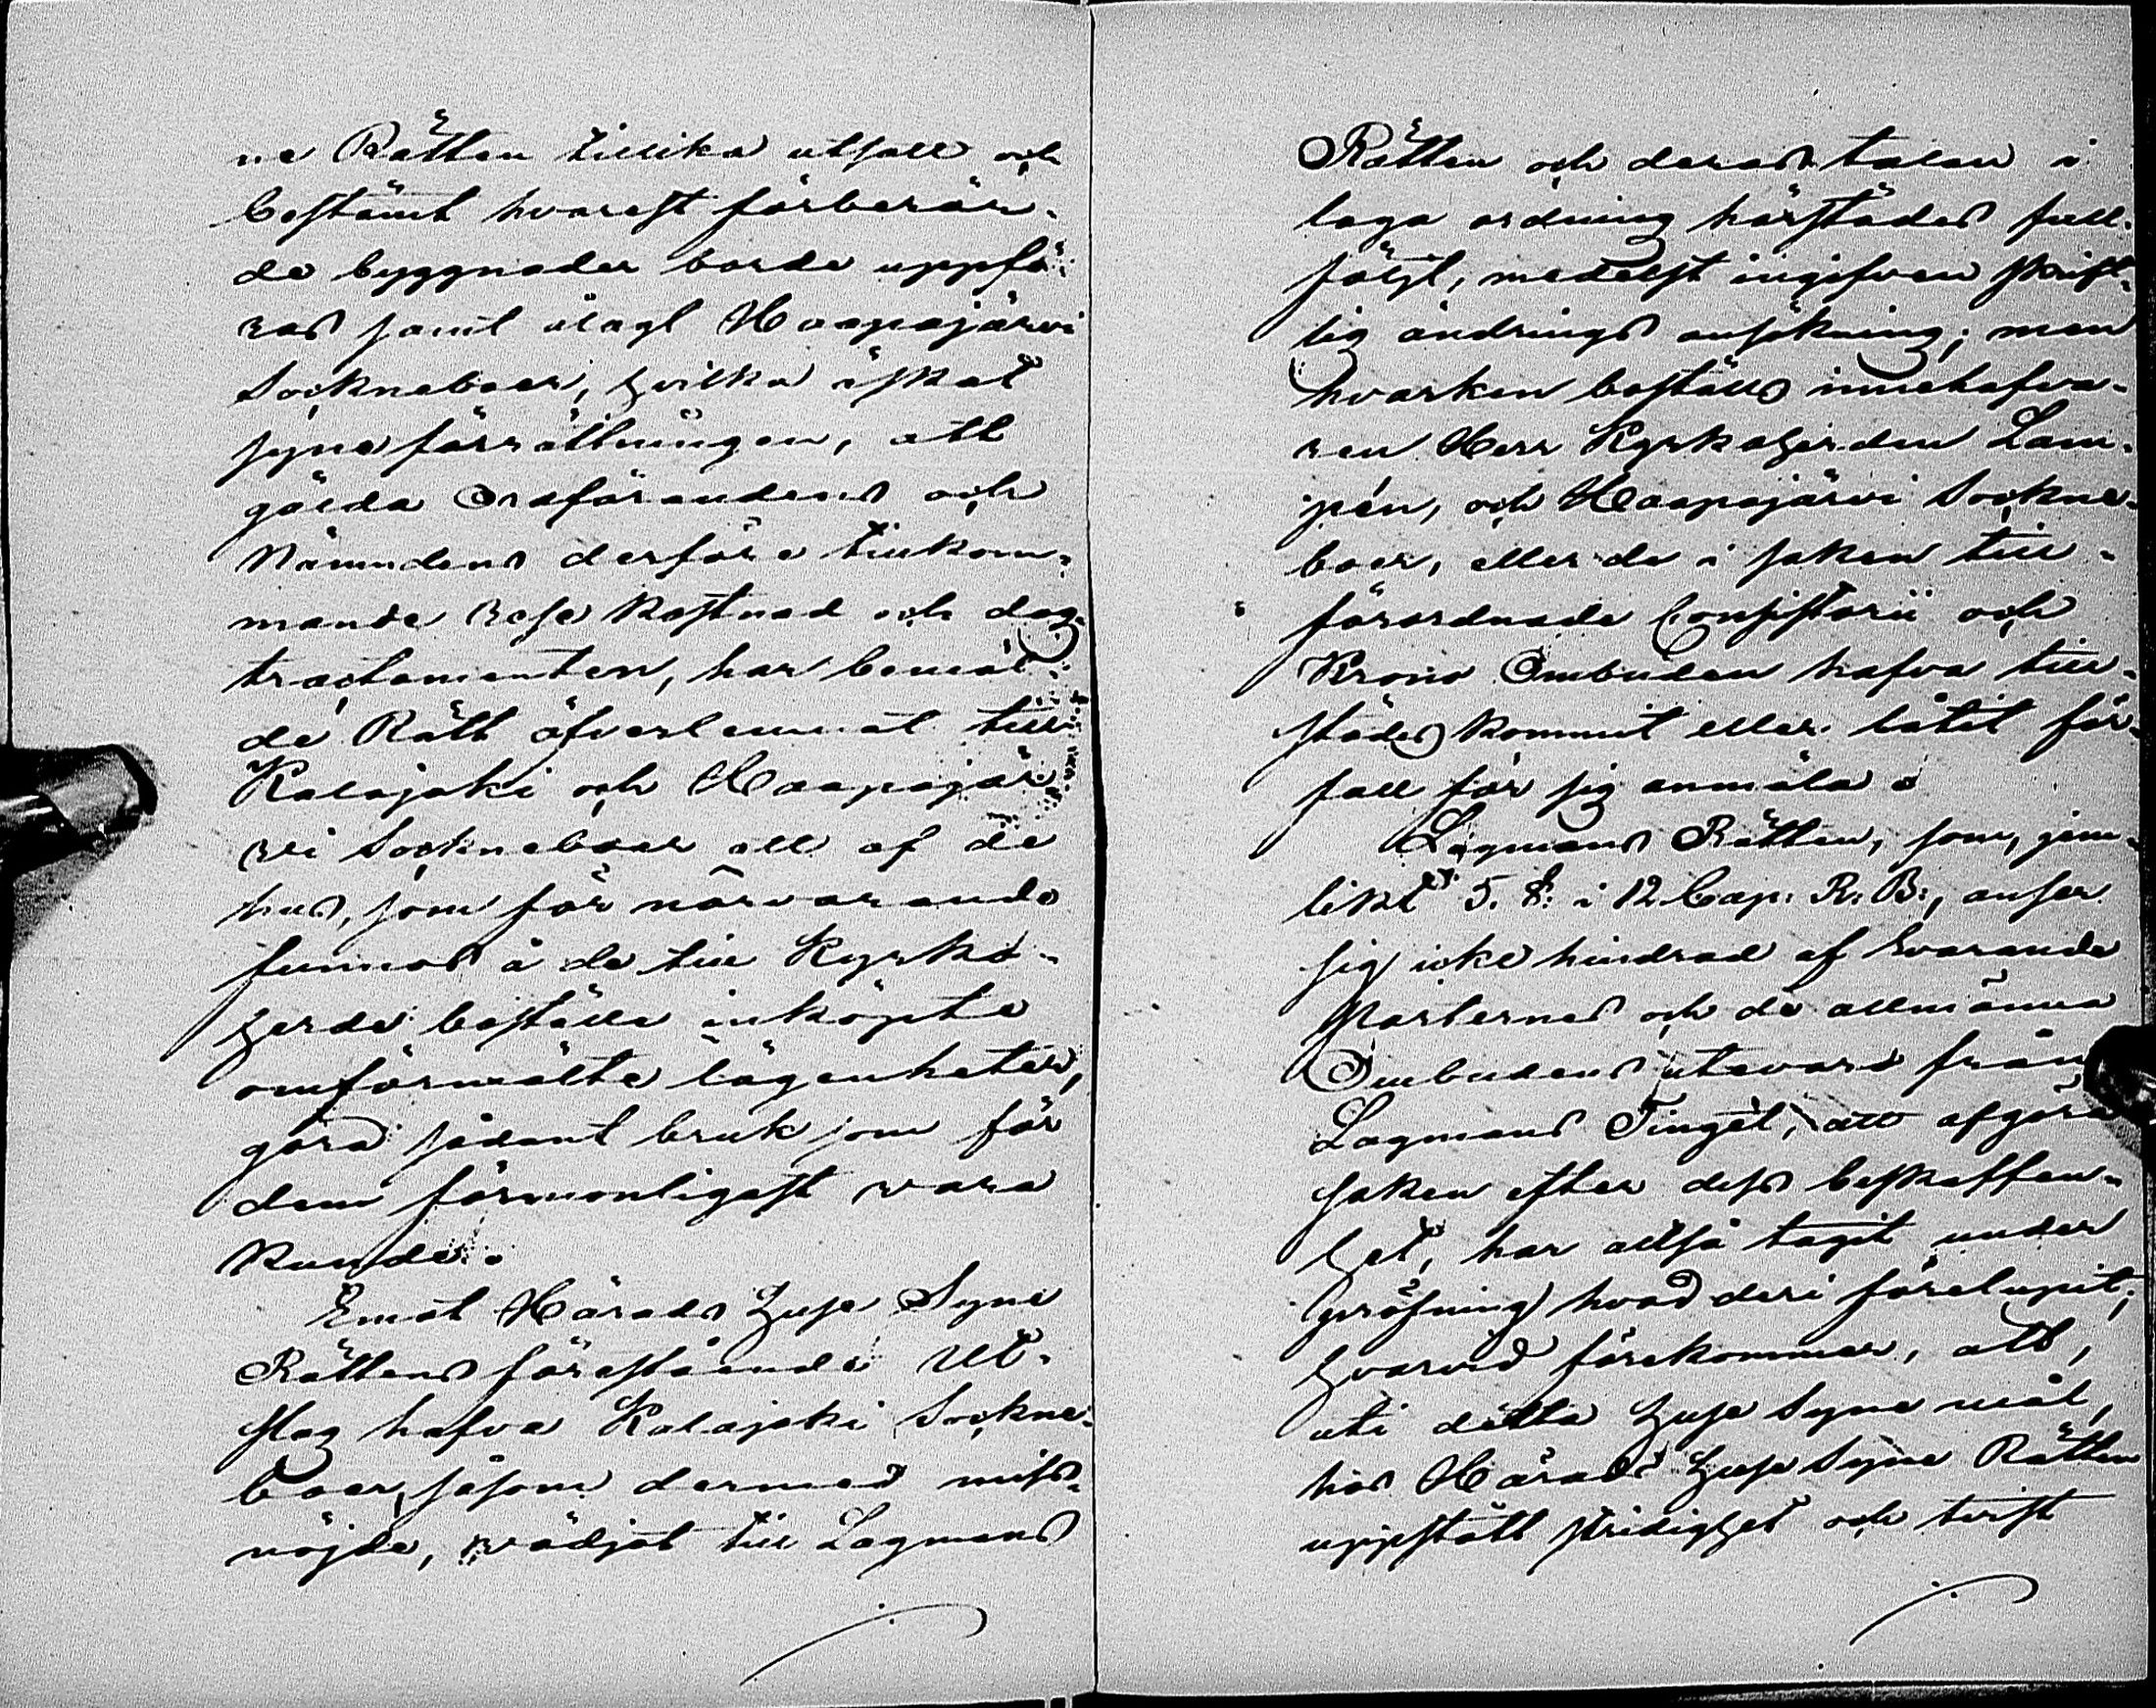 ne Rätten tillika utsatt och
bestämt hvarest förberör-
de byggnader borde uppfö-
ras samt ålagt Haapajärvi
Sockneboer, hvilka äskat
syneförrättningen, att
gälda Ordförandens och
Nämndens derföre tillkom-
mande rese kostnad och dag-
tractamenten, har bemäl-
de Rätt öfverlemnat till
Kalajoki och Haapajär-
vi Sockneboer att af de
hus, som för närvarande
funnos å de till Kyrko-
herde boställe inköpte
omförmälte lägenheter,
göra sådant bruk som för
dem förmonligast vara
kunde.
Emot Härads Huse Syne
Rättens förestående Ut-
slag hafva Kalajoki Sockne-
boer, såsom dermed miss-
nöjde, vädjat till Lagmans
Rätten och deras talan i
laga ordning härstädes full-
följt, medelst ingifven skrift-
lig ändrings ansökning; men
hvarken boställs innehafva-
ren Herr Kyrkoherden Lam-
pén, och Haapajärvi Sockne-
boer, eller de i saken till-
förordnade Consistorii och
Krono Ombuden hafva till-
städes kommit eller låtit för-
fall för sig anmäla.
Lagmans Rätten, som, jem-
likt 5. §. i 12 Cap. R. B., anser
sig icke hindrad af Svarande
Parternas och de allmänna
Ombudens utevaro från
Lagmans Tinget, att afgöra
saken efter dess beskaffen-
het, har altså tagit under
pröfning hvad deri förelupit;
hvarvid förekommer, att,
uti detta huse syne mål,
hos Härads Huse Syne Rätten
uppstått stridighet och tvist